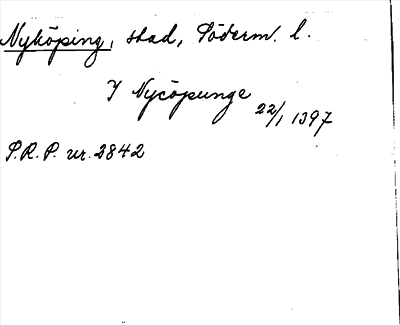 Nyköping, stad, Söderm. l.
I Nycöpunge
22/1 1397
S.R.P. nr. 2842